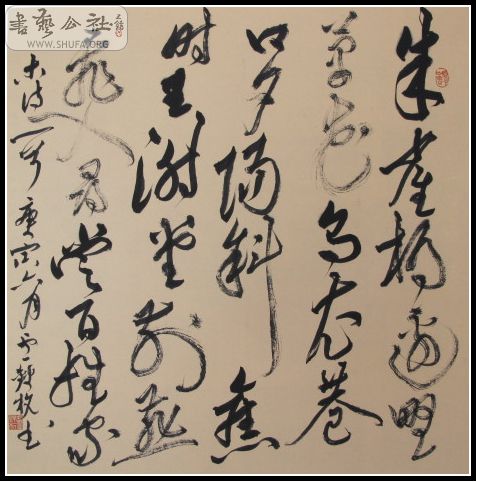 書藝公社
WWW.SHUFA.ORG
朱雀橋邊野
草花烏衣巷
口夕陽斜舊
時王謝堂前燕
飛入尋常百姓家
古詩一首 庚寅六月 书